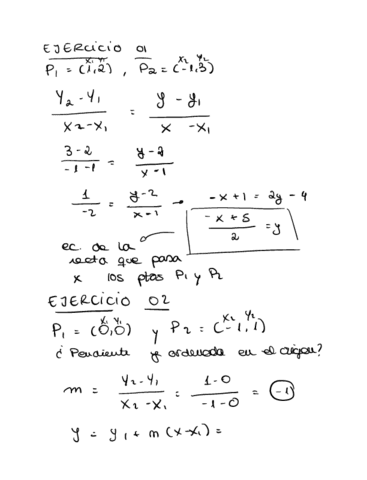 EJERCICIO 01
P₁ = (1,2) , P₂ = (-1,3)
x₁ y₁ x₂ y₂
Y₂ - Y₁ / x₂ - x₁ = y - y₁ / x - x₁
3 - 2 / -1 - 1 = y - 2 / x - 1
1 / -2 = y - 2 / x - 1 → -x + 1 = 2y - 4
-x + 5 / 2 = y
ec. de la
recta que pasa
x los ptos P₁ y P₂
EJERCICIO 02
x₁ y₁ x₂ y₂
P₁ = (0,0) y P₂ = (-1,1)
¿Pendiente y ordenada en el origen?
m = Y₂ - Y₁ / X₂ - X₁ = 1 - 0 / -1 - 0 = -1
y = y₁ + m (x - x₁) =